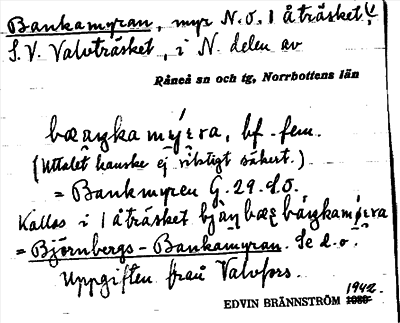 Bankamyran, myr N. O. I Åträsket,
S. V. Valvträsket, i N. delen av
Råneå sn och tg, Norrbottens län
bæŋka mýrra, bf. fem.
(Uttalet kanske ej riktigt säkert.)
= Bankmyren G. 29. d. O.
Kallas i Iåträsket
= Björnbergs-Bankamyran. Se d. o.
Uppgiften från Valvfors.
1942
EDVIN BRÄNNSTRÖM